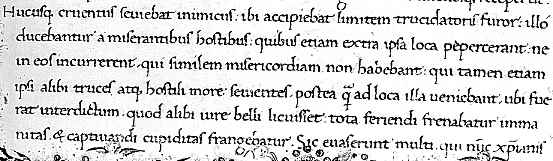 Hucusq; cruentus seuiebat inimicus. ibi accipiebat limitem trucidatoris furor. illo
ducebantur a miserantibus hostibus. quibus etiam extra ipsa loca pepercerant. ne
in eos incurrerent. qui similem misericordiam non habebant. qui tamen etiam
ipsi alibi truces atq; hostili more seuientes. postea q̃ ad loca illa ueniebant. ubi fue
rat interdictum. quod alibi iure belli licuisset. tota feriendi frenabatur imma
nitas. & captiuandi cupiditas frangebatur. Sic euaserunt multi. qui nũc xp̃ianis